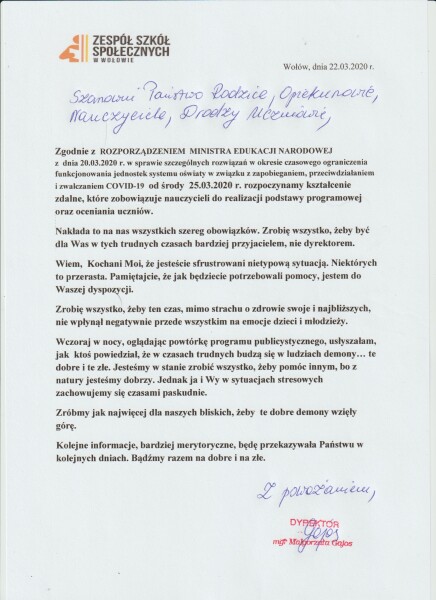 ZESPÓŁ SZKÓŁ
SPOŁECZNYCH
W WOŁOWIE
Wołów, dnia 22.03.2020 r.
Szanowni Państwo Rodzice, Opiekunowie,
Nauczyciele, Drodzy Uczniowie,
Zgodnie z ROZPORZĄDZENIEM MINISTRA EDUKACJI NARODOWEJ
z dnia 20.03.2020 r. w sprawie szczególnych rozwiązań w okresie czasowego ograniczenia
funkcjonowania jednostek systemu oświaty w związku z zapobieganiem, przeciwdziałaniem
i zwalczaniem COVID-19 od środy 25.03.2020 r. rozpoczynamy kształcenie
zdalne, które zobowiązuje nauczycieli do realizacji podstawy programowej
oraz oceniania uczniów.
Nakłada to na nas wszystkich szereg obowiązków. Zrobię wszystko, żeby być
dla Was w tych trudnych czasach bardziej przyjacielem, nie dyrektorem.
Wiem, Kochani Moi, że jesteście sfrustrowani nietypową sytuacją. Niektórych
to przerasta. Pamiętajcie, że jak będziecie potrzebowali pomocy, jestem do
Waszej dyspozycji.
Zrobię wszystko, żeby ten czas, mimo strachu o zdrowie swoje i najbliższych,
nie wpłynął negatywnie przede wszystkim na emocje dzieci i młodzieży.
Wczoraj w nocy, oglądając powtórkę programu publicystycznego, usłyszałam,
jak ktoś powiedział, że w czasach trudnych budzą się w ludziach demony… te
dobre i te złe. Jesteśmy w stanie zrobić wszystko, żeby pomóc innym, bo z
natury jesteśmy dobrzy. Jednak ja i Wy w sytuacjach stresowych
zachowujemy się czasami paskudnie.
Zróbmy jak najwięcej dla naszych bliskich, żeby te dobre demony wzięły
górę.
Kolejne informacje, bardziej merytoryczne, będę przekazywała Państwu w
kolejnych dniach. Bądźmy razem na dobre i na złe.
Z poważaniem,
DYREKTOR
Gajos
mgr Małgorzata Gajos